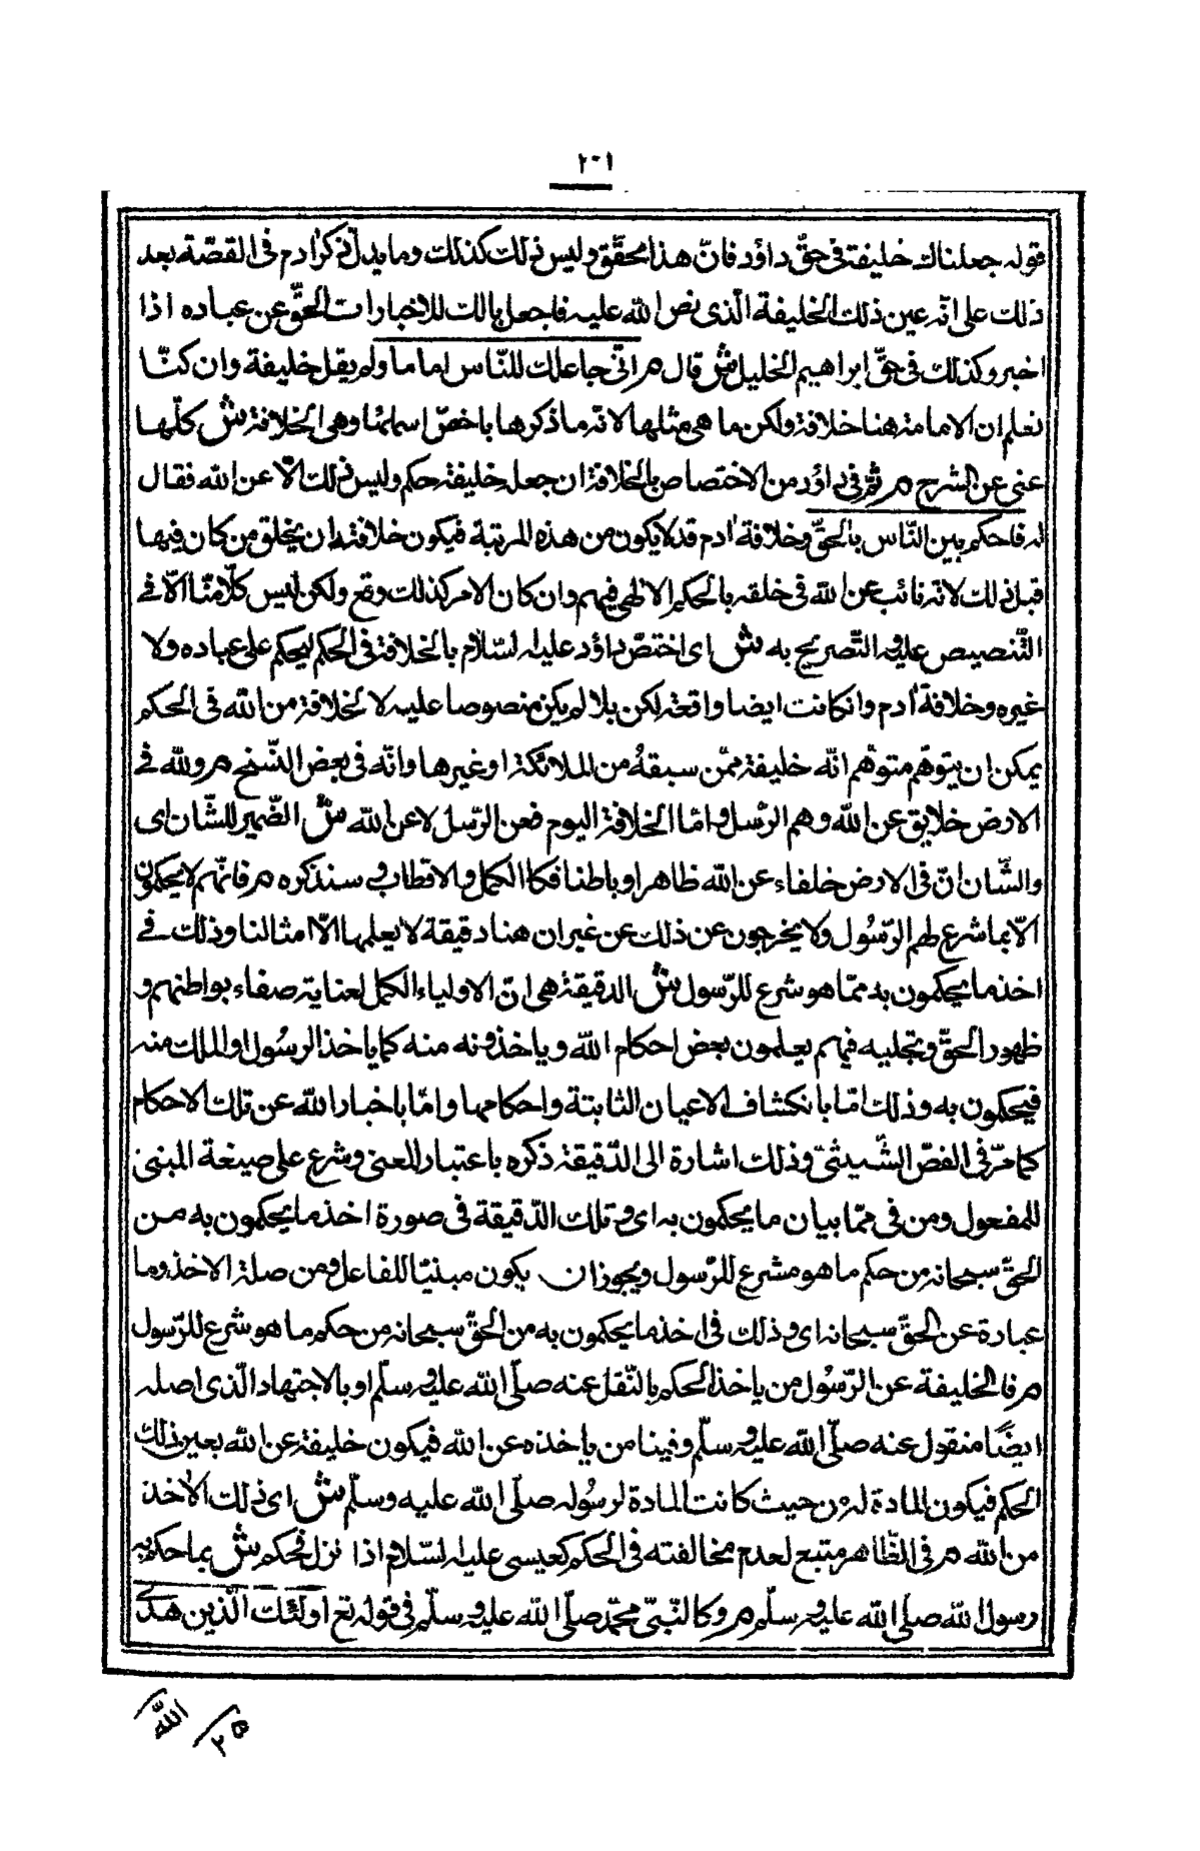 ٢٠١
قوله جعلناك خليفة فى حقّ داؤد فانّ هذا محقّق وليس ذلك كذلك وما يدلّ ذكر ادم فى القصّة بعد
ذلك على انّه عين ذلك الخليفة الّذى نص الله عليه فاجعل بالك للاخبارات الحقّ عن عباده اذا
اخبر وكذلك فى حقّ ابراهيم الخليل ش قال م انّى جاعلك للنّاس اماما ولم يقل خليفة وان كنّا
نعلم ان الامامة هنا خلافة ولكن ما هى مثلها لانّه ما ذكرها باخصّ اسمائها وهى الخلافة ش كلّها
غنى عن الشرح م ثمّ فى داؤد من الاختصاص بالخلافة ان جعله خليفة حكم وليس ذلك الّا عن الله فقال
له فاحكم بين النّاس بالحقّ وخلافة ادم قد لا يكون من هذه المرتبة فيكون خلافته ان يخلق من كان فيها
قبل ذلك لانّه نائب عن الله فى خلقه بالحكم الالهى فيهم وان كان الامر كذلك وقع ولكن ليس كلامنا الّا فى
التّنصيص عليه والتّصريح به ش اى اختصّ داؤد عليه السّلام بالخلافة فى الحكم ليحكم على عباده ولا
غيره وخلافة ادم وان كانت ايضا واقعة لكن بلا لم يكن منصوصا عليه لا لخلافة من الله فى الحكم
يمكن ان يتوهّم متوهّم انّه خليفة ممّن سبقه من الملائكة او غيرها وانّه فى بعض النّسخ م ولله فى
الارض خلايق عن الله وهم الرّسل وامّا الخلافة اليوم فعن الرّسل لا عن الله ش الضّمير للشّان اى
والشّان انّ فى الارض خلفاء عن الله ظاهرا وباطنا فكا الكمل والاقطاب و سنذكره م فانّهم لا يحكمون
الّا بما شرع لهم الرّسول ولا يخرجون عن ذلك عن غير ان هنا دقيقة لا يعلمها الّا امثالنا وذلك فى
اخذ ما يحكمون به ممّا هو شرع للرّسول ش الدقيقة هى انّ الاولياء الكمل لعناية صفاء بواطنهم و
ظهور الحقّ وتجليه فيهم يعلمون بعض احكام الله وياخذونه منه كما ياخذ الرسول او الملك منه
فيحكمون به وذلك امّا بانكشاف الاعيان الثابتة واحكامها وامّا باخبار الله عن تلك الاحكام
كما مرّ فى الفصّ الشّيثى وذلك اشارة الى الدّقيقة ذكره باعتبار المعنى وشرع على صيغة المبنى
للمفعول ومن فى ممّا بيان ما يحكمون به اى وتلك الدّقيقة فى صورة اخذ ما يحكمون به من
الحقّ سبحانه من حكم ما هو مشرع للرّسول ويجوز ان يكون مبنيّا للفاعل ومن صلة الاخذ وما
عبارة عن الحقّ سبحانه اى وذلك فى اخذ ما يحكمون به من الحقّ سبحانه من حكم ما هو شرع للرّسول
م فالخليفة عن الرّسول من ياخذ الحكم بالنّقل عنه صلّى الله عليه وسلّم او بالاجتهاد الّذى اصله
ايضًا منقول عنه صلّى الله عليه وسلّم وفينا من ياخذه عن الله فيكون خليفة عن الله بعين ذلك
الحكم فيكون المادة له من حيث كانت المادة لرسوله صلّى الله عليه وسلّم ش اى ذلك الاخذ
من الله م فى الظّاهر متبع لعدم مخالفته فى الحكم كعيسى عليه السّلام اذا نزل فحكم ش بما حكم به
رسول الله صلى الله عليه وسلّم م وكالنّبىّ محمّد صلّى الله عليه وسلّم فى قوله تع اولئك الّذين هدى
الله
٢٥